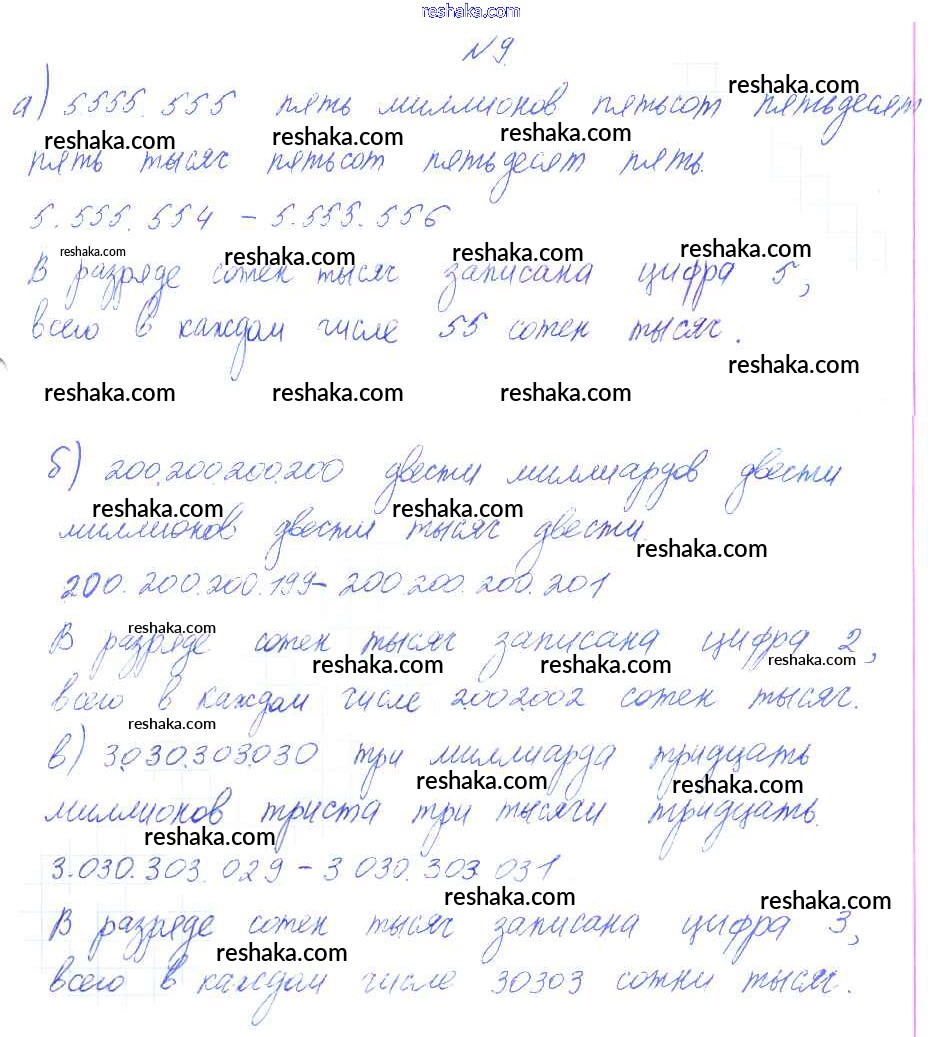 reshaka.com
№9.
reshaka.com
а) 5 555. 555 пять миллионов пятьсот пятьдесят
reshaka.com reshaka.com reshaka.com
пять тысяч пятьсот пятьдесят пять.
5.555.554 – 5.555.556
reshaka.com reshaka.com reshaka.com reshaka.com
В разряде сотен тысяч записана цифра 5,
всего в каждом числе 55 сотен тысяч.
reshaka.com
reshaka.com reshaka.com reshaka.com
б) 200.200.200.200 двести миллиардов двести
reshaka.com reshaka.com
миллионов двести тысяч двести.
reshaka.com
200.200.200.199 – 200.200.200.201
reshaka.com
В разряде сотен тысяч записана цифра 2,
reshaka.com reshaka.com reshaka.com
всего в каждом числе 2002002 сотен тысяч.
reshaka.com
в) 3.030.303.030 три миллиарда тридцать
reshaka.com reshaka.com
миллионов триста три тысячи тридцать.
reshaka.com
3.030.303.029 – 3 030.303 031
reshaka.com reshaka.com
В разряде сотен тысяч записана цифра 3,
reshaka.com
всего в каждом числе 30303 сотни тысяч.